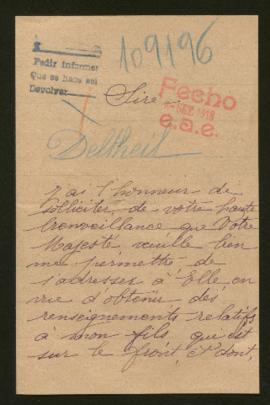 109196
Pedir informes
Que se hace así
Devolver
Sire
Fecho
SEP. 1918
e.a.e.
Deltheil
J'ai l'honneur de
solliciter de votre haute
bienveillance que Votre
Majesté, veuille bien
me permettre de
s'adresser à Elle en
vue d'obtenir des
renseignements relatifs
à mon fils, qui est
sur le front, et dont,